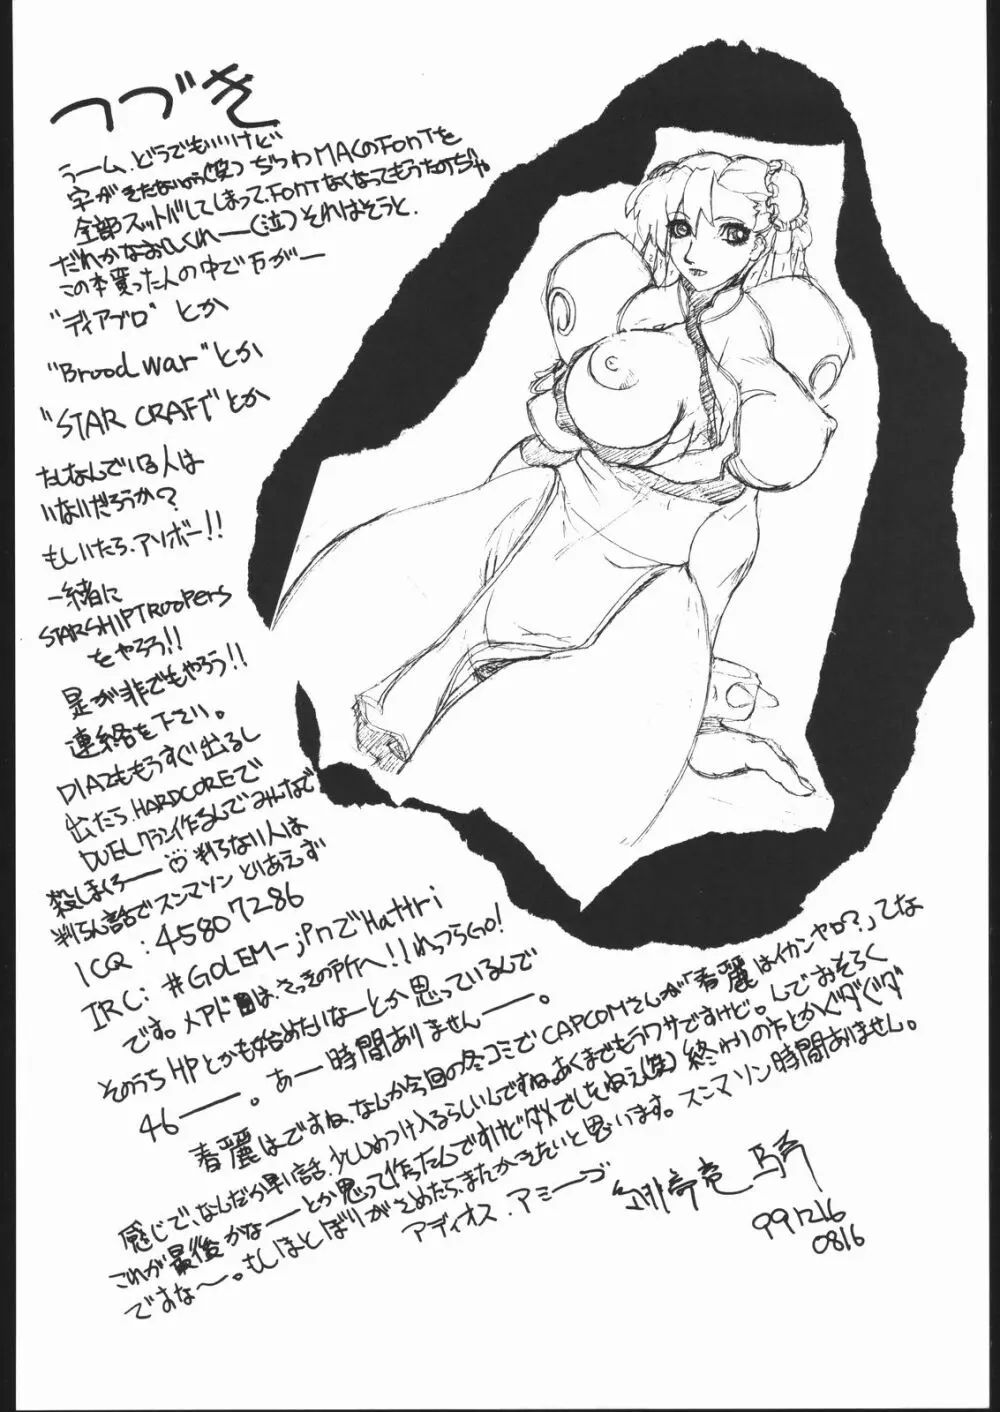 つづき
うーム、どうでもいいけど
字がきたないのう(笑)じつわMACのFONTを
全部スットバしてしまって、FONTなくなってもうたのぢゃ
だれかなおしくれー(泣)それはそうと、
この本買った人の中で万が一
"ディアブロ" とか
"Brood war"とか
"STAR CRAFT"とか
たしなんでいる人は
いないだろうか?
もしいたら、アソボー!!
一緒に
STARSHIPTROOPERS
をやろう!!
是が非でもやろう!!
連絡を下さい。
DIA2ももうすぐ出るし
出たら、HARDCOREで
DUELクラン作るんでみんなで
殺しまくろー♡ 判らない人は
判らん話でスンマソン とりあえず
ICQ:45807286
IRC:#GOLEM-jPnでHattri
です。メアドは、さっきの所へ!!れっつらGO!
そのうちHPとかも始めたいなーとか思っているんで
46ー。あー時間ありませんー。
春麗はですね、なんか今回の冬コミでCAPCOMさんが「春麗はイカンヤロ?」てな
感じで、なんだか早い話、少しめつけ入るらしいんですね。あくまでもうワサですけど。んでおそらく
これが最後かなーとか思って作ったんですけどダメでしたねえ(笑)終わりの方とかグダグダ
ですな〜。もしほとぼりがさめたら、またかきたいと思います。スンマソン時間ありません。
アディオス、アミーゴ
991216
0816